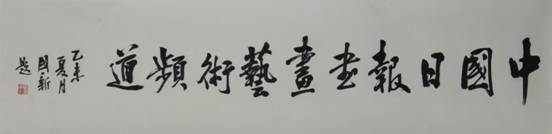 中國日報書畫藝術頻道
乙未
夏月
國新
題